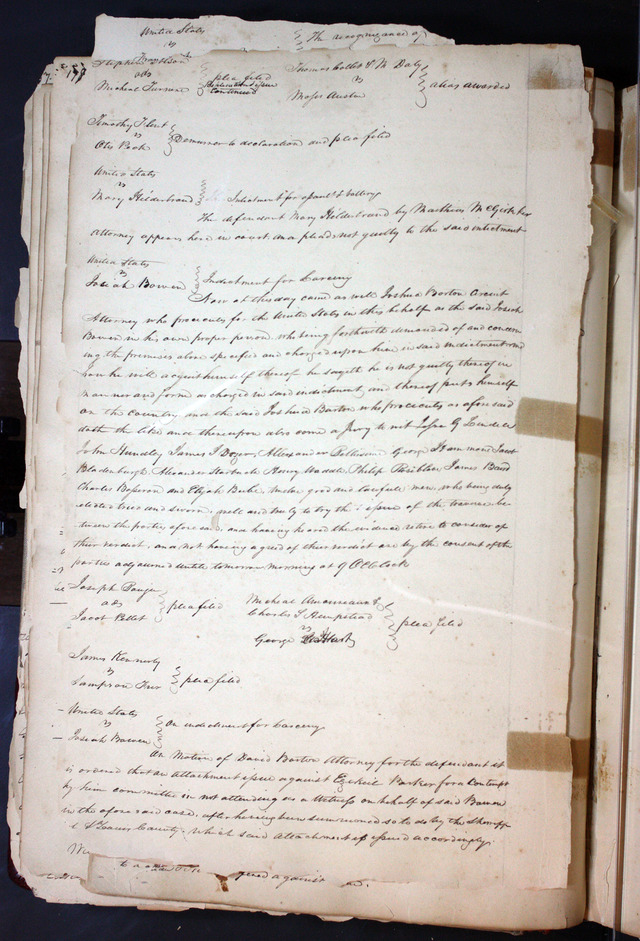 United States
vs
The recognizance of
157
ads
Micheal
plea filed
continued
Thomas & M Daly
vs
Moses Austin
alias awarded
Timothy Flint
vs
Otis Peck
Demurrer to declaration and plea filed
United States
vs
Mary Hilderbrand
Indictment for assault & battery
The defendant Mary Hilderbrand by Mathias McGirk her
Attorney appears here in court and pleads not guilty to the said indictment
United States
vs
Josiah Bowen
Indictment for Larceny
Now at this day came as well Joshua Barton Circuit
Attorney who prosecutes for the United States in this behalf as the said Josiah
Bowen in his own proper person, who being forthwith demanded of and concern
ing the premises above specified and charged upon him in said indictment
how he will acquit himself thereof he sayeth he is not guilty thereof in
manner and form as charged in said indictment, and thereof puts himself
on the Country and the said Joshua Barton who prosecutes as aforesaid
doth the like and thereupon also came a Jury to wit Jesse G Lindell
John Hundley James I Dozer, Allexander Bellissime George Hammond Jacob
Bladenburgh, Alexander Henry Waddle Philip James Baird
Charles Bosseron and Elijah twelve good and lawful men, who being duly
elected tried and sworn, well and truly to try the issue of the traverse be-
tween the parties aforesaid, and having heard the evidence retire to consider of
their verdict, and not having agreed of their verdict are by the consent of the
parties adjourned until tomorrow morning at 9 OClock
Joseph
ads
Jacob Pettet
plea filed
Micheal &
Charles S Hempstead
vs
George
plea filed
James Kennerly
vs
Sampson
plea filed
United States
vs
Josiah Bowen
An indictment for Larceny
On Motion of David Barton Attorney for the defendant it
is ordered that an attachment issue against Ezekiel Barker for a Contempt
by him committed in not attending as a Witness on behalf of said Bowen
in the aforesaid case, after having been summoned so to do by the Sheriff
of St Louis County, which said attachment is issued accordingly.
against